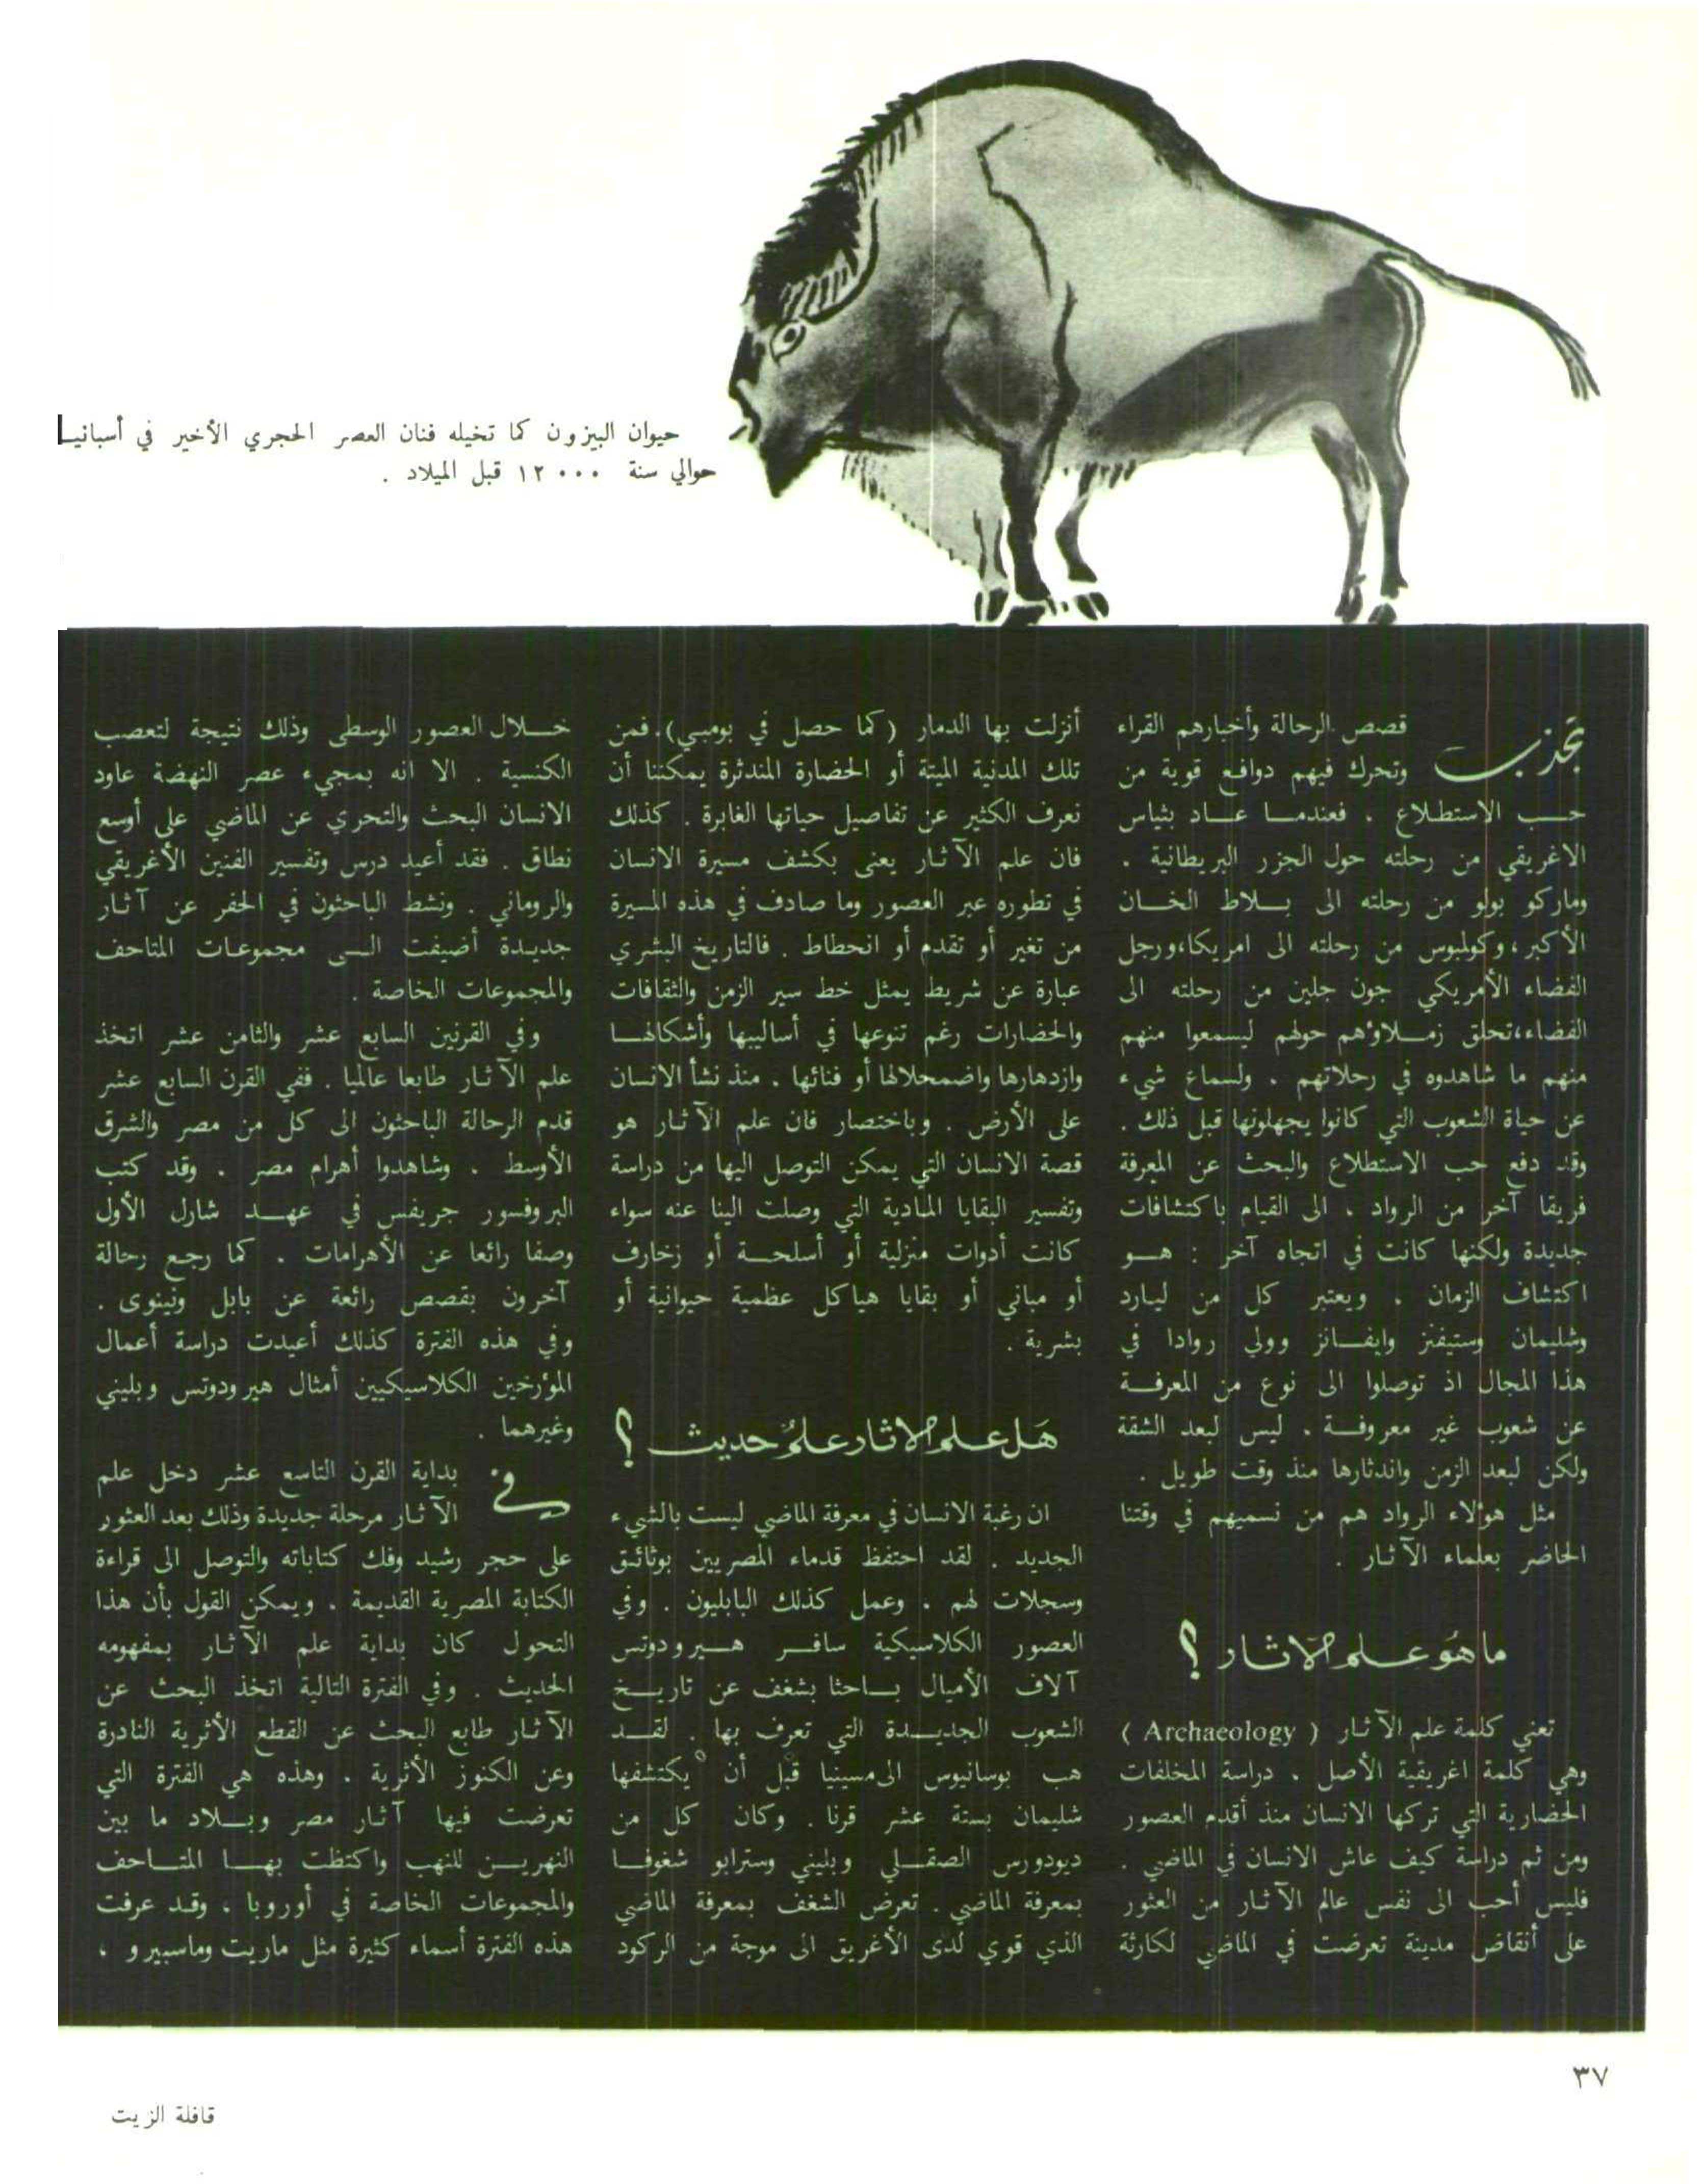 حيوان البيزون كما تخيله فنان العصر الحجري الأخير في أسبانيـا
حوالي سنة ١٢٠٠٠ قبل الميلاد .
تجذب قصص الرحالة وأخبارهم القراء
وتحرك فيهم دوافع قوية من
حـب الاستطـلاع ، فعندمـا عـاد بثياس
الاغريقي من رحلته حول الجزر البريطانية ،
وماركو بولو من رحلته الى بـلاط الخـان
الأكبر ، وكولمبوس من رحلته الى امريكا ، ورجل
الفضاء الأمريكي جون جلين من رحلته الى
الفضاء ، تحلق زمـلاؤهم حولهم ليسمعوا منهم
منهم ما شاهدوه في رحلاتهم ، ولسماع شيء
عن حياة الشعوب التي كانوا يجهلونها قبل ذلك .
وقد دفع حب الاستطلاع والبحث عن المعرفة
فريقا آخر من الرواد ، الى القيام باكتشافات
جديدة ولكنها كانت في اتجاه آخر : هـو
اكتشاف الزمان . ويعتبر كل من ليارد
وشليمان وستيفنز وايفـانز وولي روادا في
هذا المجال اذ توصلوا الى نوع من المعرفـة
عن شعوب غير معروفـة ، ليس لبعد الشقة
ولكن لبعد الزمن واندثارها منذ وقت طويل .
مثل هؤلاء الرواد هم من نسميهم في وقتنا
الحاضر بعلماء الآثـار .
ما هو علم الآثار ؟
تعني كلمة علم الآثـار ( Archaeology )
وهي كلمة اغريقية الأصل ، دراسة المخلفات
الحضارية التي تركها الانسان منذ أقدم العصور
ومن ثم دراسة كيف عاش الانسان في الماضي .
فليس أحب الى نفس عالم الآثـار من العثور
على أنقاض مدينة تعرضت في الماضي لكارثة
أنزلت بها الدمار ( كما حصل في بومبـي ) . فمن
تلك المدنية الميتة أو الحضارة المندثرة يمكننا أن
نعرف الكثير عن تفاصيل حياتها الغابرة . كذلك
فان علم الآثـار يعنى بكشف مسيرة الانسان
في تطوره عبر العصور وما صادف في هذه المسيرة
من تغير أو تقدم أو انحطاط . فالتاريخ البشري
عبارة عن شريط يمثل خط سير الزمن والثقافات
والحضارات رغم تنوعها في أساليبها وأشكالهـا
وازدهارها واضمحلالها أو فنائها ، منذ نشأ الانسان
على الأرض . وباختصار فان علم الآثـار هو
قصة الانسان التي يمكن التوصل اليها من دراسة
وتفسير البقايا المادية التي وصلت الينا عنه سواء
كانت أدوات منزلية أو أسلحـة أو زخارف
أو مباني أو بقايا هياكل عظمية حيوانية أو
بشرية .
هل علم الاثار علم حديث ؟
ان رغبة الانسان في معرفة الماضي ليست بالشيء
الجديد . لقد احتفظ قدماء المصريين بوثائـق
وسجلات لهم ، وعمل كذلك البابليون . وفي
العصور الكلاسيكية سافـر هـيرودوتس
آلاف الأميال بـاحثا بشغف عن تاريـخ
الشعوب الجديـدة التي تعرف بها . لقـد
هب بوسانيوس الى مسينيا قبل أن يكتشفها
شليمان بستة عشر قرنا . وكان كل من
ديودورس الصقـلي وبليني وسترابو شغوفـا
بمعرفة الماضي . تعرض الشغف بمعرفة الماضي
الذي قوي لدى الأغريق الى موجة من الركود
خـلال العصور الوسطى وذلك نتيجة لتعصب
الكنسية . الا انه بمجيء عصر النهضة عاود
الانسان البحث والتحري عن الماضي على أوسع
نطاق . فقد أعيد درس وتفسير الفنين الأغريقي
والروماني . ونشط الباحثون في الحفر عن آثـار
جديـدة أضيفت الـى مجموعـات المتاحف
والمجموعات الخاصة .
وفي القرنين السابع عشر والثامن عشر اتخذ
علم الآثـار طابعا عالميا . ففي القرن السابع عشر
قدم الرحالة الباحثون الى كل من مصر والشرق
الأوسط ، وشاهدوا أهرام مصر . وقد كتب
البروفسور جريفس في عهـد شارل الأول
وصفا رائعا عن الأهرامات . كما رجع رحالة
آخرون بقصص رائعة عن بابل ونينوى .
وفي هذه الفترة كذلك أعيدت دراسة أعمال
المؤرخين الكلاسيكيين أمثال هيرودوتس وبليني
وغيرهما .
في بداية القرن التاسع عشر دخل علم
الآثـار مرحلة جديدة وذلك بعد العثور
على حجر رشيد وفك كتاباته والتوصل الى قراءة
الكتابة المصرية القديمة ، ويمكن القول بأن هذا
التحول كان بداية علم الآثـار بمفهومه
الحديث . وفي الفترة التالية اتخذ البحث عن
الآثـار طابع البحث عن القطع الأثرية النادرة
وعن الكنوز الأثرية . وهذه هي الفترة التي
تعرضت فيها آثـار مصر وبـلاد ما بين
النهريـن للنهب واكتظت بهـا المتـاحف
والمجموعات الخاصة في أوروبا ، وقـد عرفت
هذه الفترة أسماء كثيرة مثل ماريت وماسبيرو ،
٣٧
قافلة الزيت